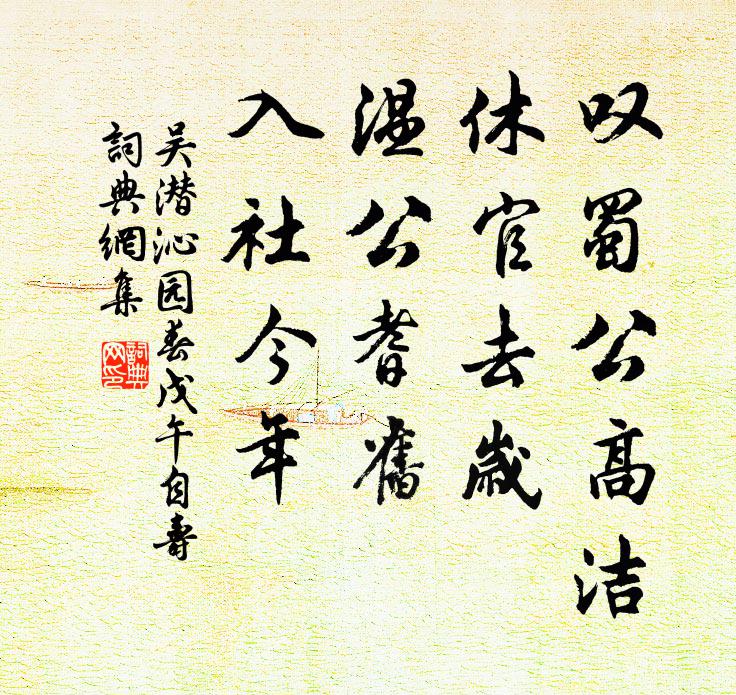 叹蜀公高洁
休官去歲
温公耆舊
入社今年
吴潜沁园春戊午自壽
詞典網集
詞典網印